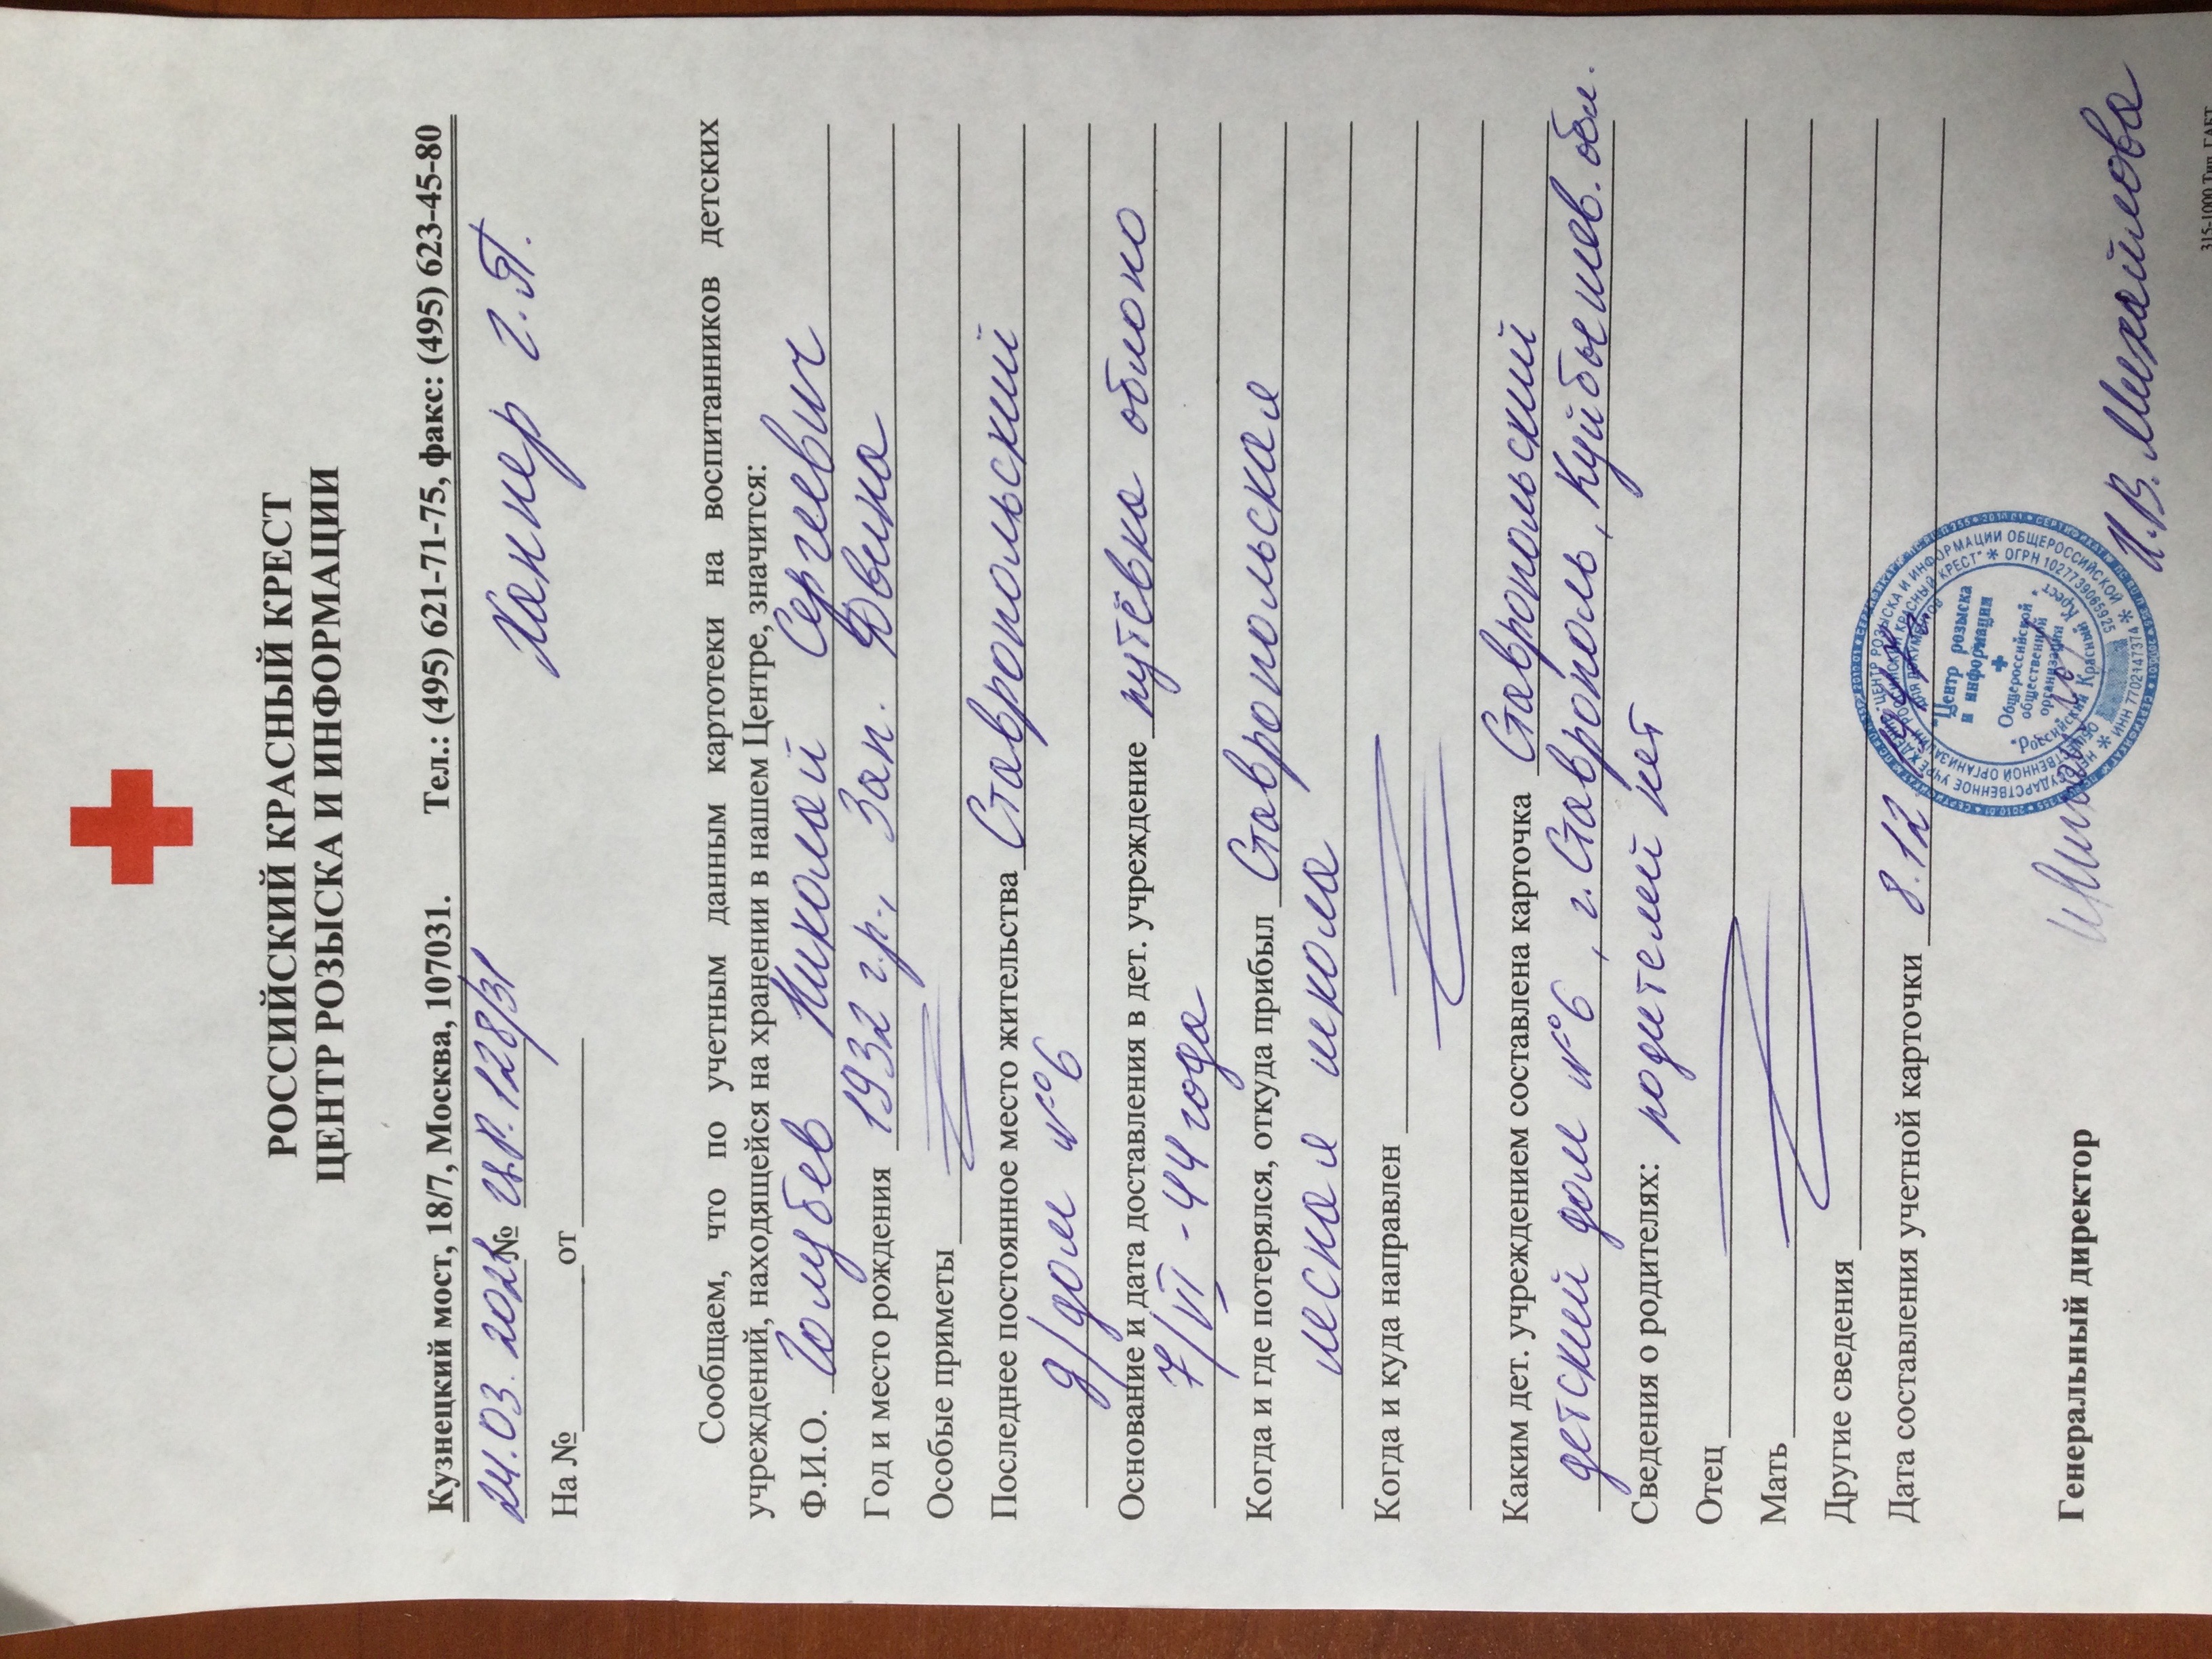 РОССИЙСКИЙ КРАСНЫЙ КРЕСТ
ЦЕНТР РОЗЫСКА И ИНФОРМАЦИИ
Кузнецкий мост, 18/7, Москва, 107031. Тел.: (495) 621-71-75, факс: (495) 623-45-80
24.03.2021 № ЦР. 128/31
На № от
Ханнер Г.П.
Сообщаем, что по учетным данным картотеки на воспитанников детских
учреждений, находящейся на хранении в нашем Центре, значится:
Ф.И.О. Голубев Николай Сергеевич
Год и место рождения 1932 г.р., Зап. Двина
Особые приметы
Последнее постоянное место жительства Ставропольский
д/дом №6
Основание и дата доставления в дет. учреждение путёвка облоно
7/VI-44 года
Когда и где потерялся, откуда прибыл Ставропольская
лесная школа
Когда и куда направлен
Каким дет. учреждением составлена карточка Ставропольский
детский дом №6, г. Ставрополь, Куйбышев. обл.
Сведения о родителях: родителей нет
Отец
Мать
Другие сведения
Дата составления учетной карточки 8.12
"Центр розыска
и информации
Общероссийской
общественной
организации
"Российский Красный Крест"
ОГРН 1027739065925
ИНН 7702147374
Генеральный директор И.В. Михайлова